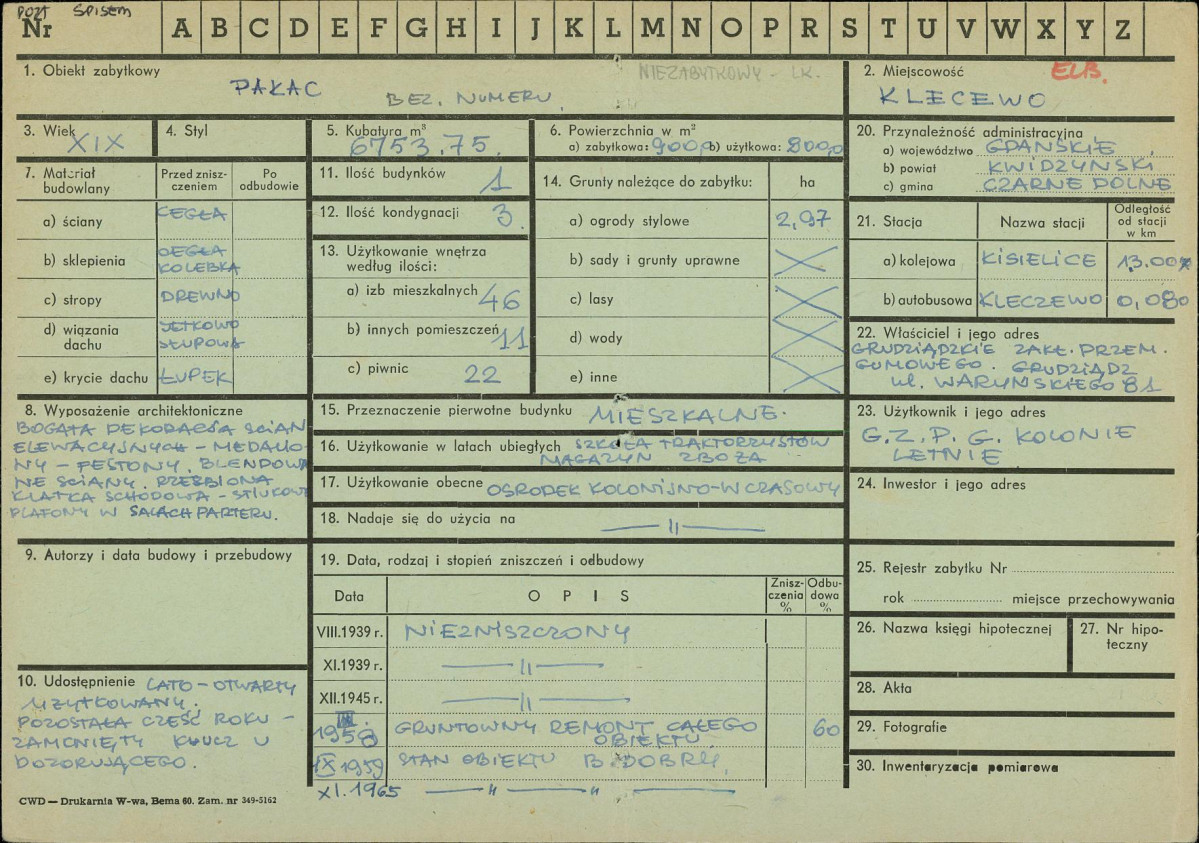 POZA SPISEM
Nr A B C D E F G H I J K L M N O P R S T U V W X Y Z
1. Obiekt zabytkowy
NIEZABYTKOWY - LK.
PAŁAC BEZ. NUMERU.
2. Miejscowość
ELB.
KLECEWO
3. Wiek
XIX
4. Styl
5. Kubatura m³
6753.75.
6. Powierzchnia w m²
a) zabytkowa: 900,0 b) użytkowa: 800,0
20. Przynależność administracyjna
a) województwo GDAŃSKIE
b) powiat KWIDZYŃSKI
c) gmina CZARNE DOLNE
7. Materiał budowlany
Przed zniszczeniem
Po odbudowie
a) ściany CEGŁA
b) sklepienia CEGŁA KOLEBKA
c) stropy DREWNO
d) wiązania dachu JĘTKOWO SŁUPOWA
e) krycie dachu ŁUPEK
11. Ilość budynków 1
12. Ilość kondygnacji 3.
13. Użytkowanie wnętrza według ilości:
a) izb mieszkalnych 46
b) innych pomieszczeń 11
c) piwnic 22
14. Grunty należące do zabytku: ha
a) ogrody stylowe 2,97
b) sady i grunty uprawne
c) lasy
d) wody
e) inne
21. Stacja
Nazwa stacji
Odległość od stacji w km
a) kolejowa KISIELICE 13.00
b) autobusowa KLECZEWO 0,080
22. Właściciel i jego adres
GRUDZIĄDZKIE ZAKŁ. PRZEM.
GUMOWEGO. GRUDZIĄDZ
ul. WARYŃSKIEGO 81
8. Wyposażenie architektoniczne
BOGATA DEKORACJA ŚCIAN
ELEWACYJNYCH - MEDALIO-
NY - FESTONY, BLENDOWA
NE ŚCIANY. RZEŹBIONA
KLATKA SCHODOWA - STIUKOWE
PLAFONY W SALACH PARTERU.
15. Przeznaczenie pierwotne budynku MIESZKALNE.
16. Użytkowanie w latach ubiegłych SZKOŁA TRAKTORZYSTÓW
MAGAZYN ZBOŻA
17. Użytkowanie obecne OŚRODEK KOLONIJNO-WCZASOWY
18. Nadaje się do użycia na — 〃 —
23. Użytkownik i jego adres
G.Z.P.G. KOLONIE
LETNIE
24. Inwestor i jego adres
9. Autorzy i data budowy i przebudowy
19. Data, rodzaj i stopień zniszczeń i odbudowy
Data
OPIS
Zniszczenia %
Odbudowa %
VIII.1939 r. NIEZNISZCZONY
XI.1939 r. — 〃 —
XII.1945 r. — 〃 —
III. 1958 GRUNTOWNY REMONT CAŁEGO OBIEKTU 60
IX 1959 STAN OBIEKTU B. DOBRY,
XI.1965 — 〃 — 〃 —
25. Rejestr zabytku Nr
rok miejsce przechowywania
26. Nazwa księgi hipotecznej
27. Nr hipoteczny
28. Akta
29. Fotografie
30. Inwentaryzacja pomiarowa
10. Udostępnienie LATO - OTWARTY
UŻYTKOWANY.
POZOSTAŁA CZĘŚĆ ROKU -
ZAMKNIĘTY KLUCZ U
DOZORUJĄCEGO.
CWD — Drukarnia W-wa, Bema 60. Zam. nr 349-5162